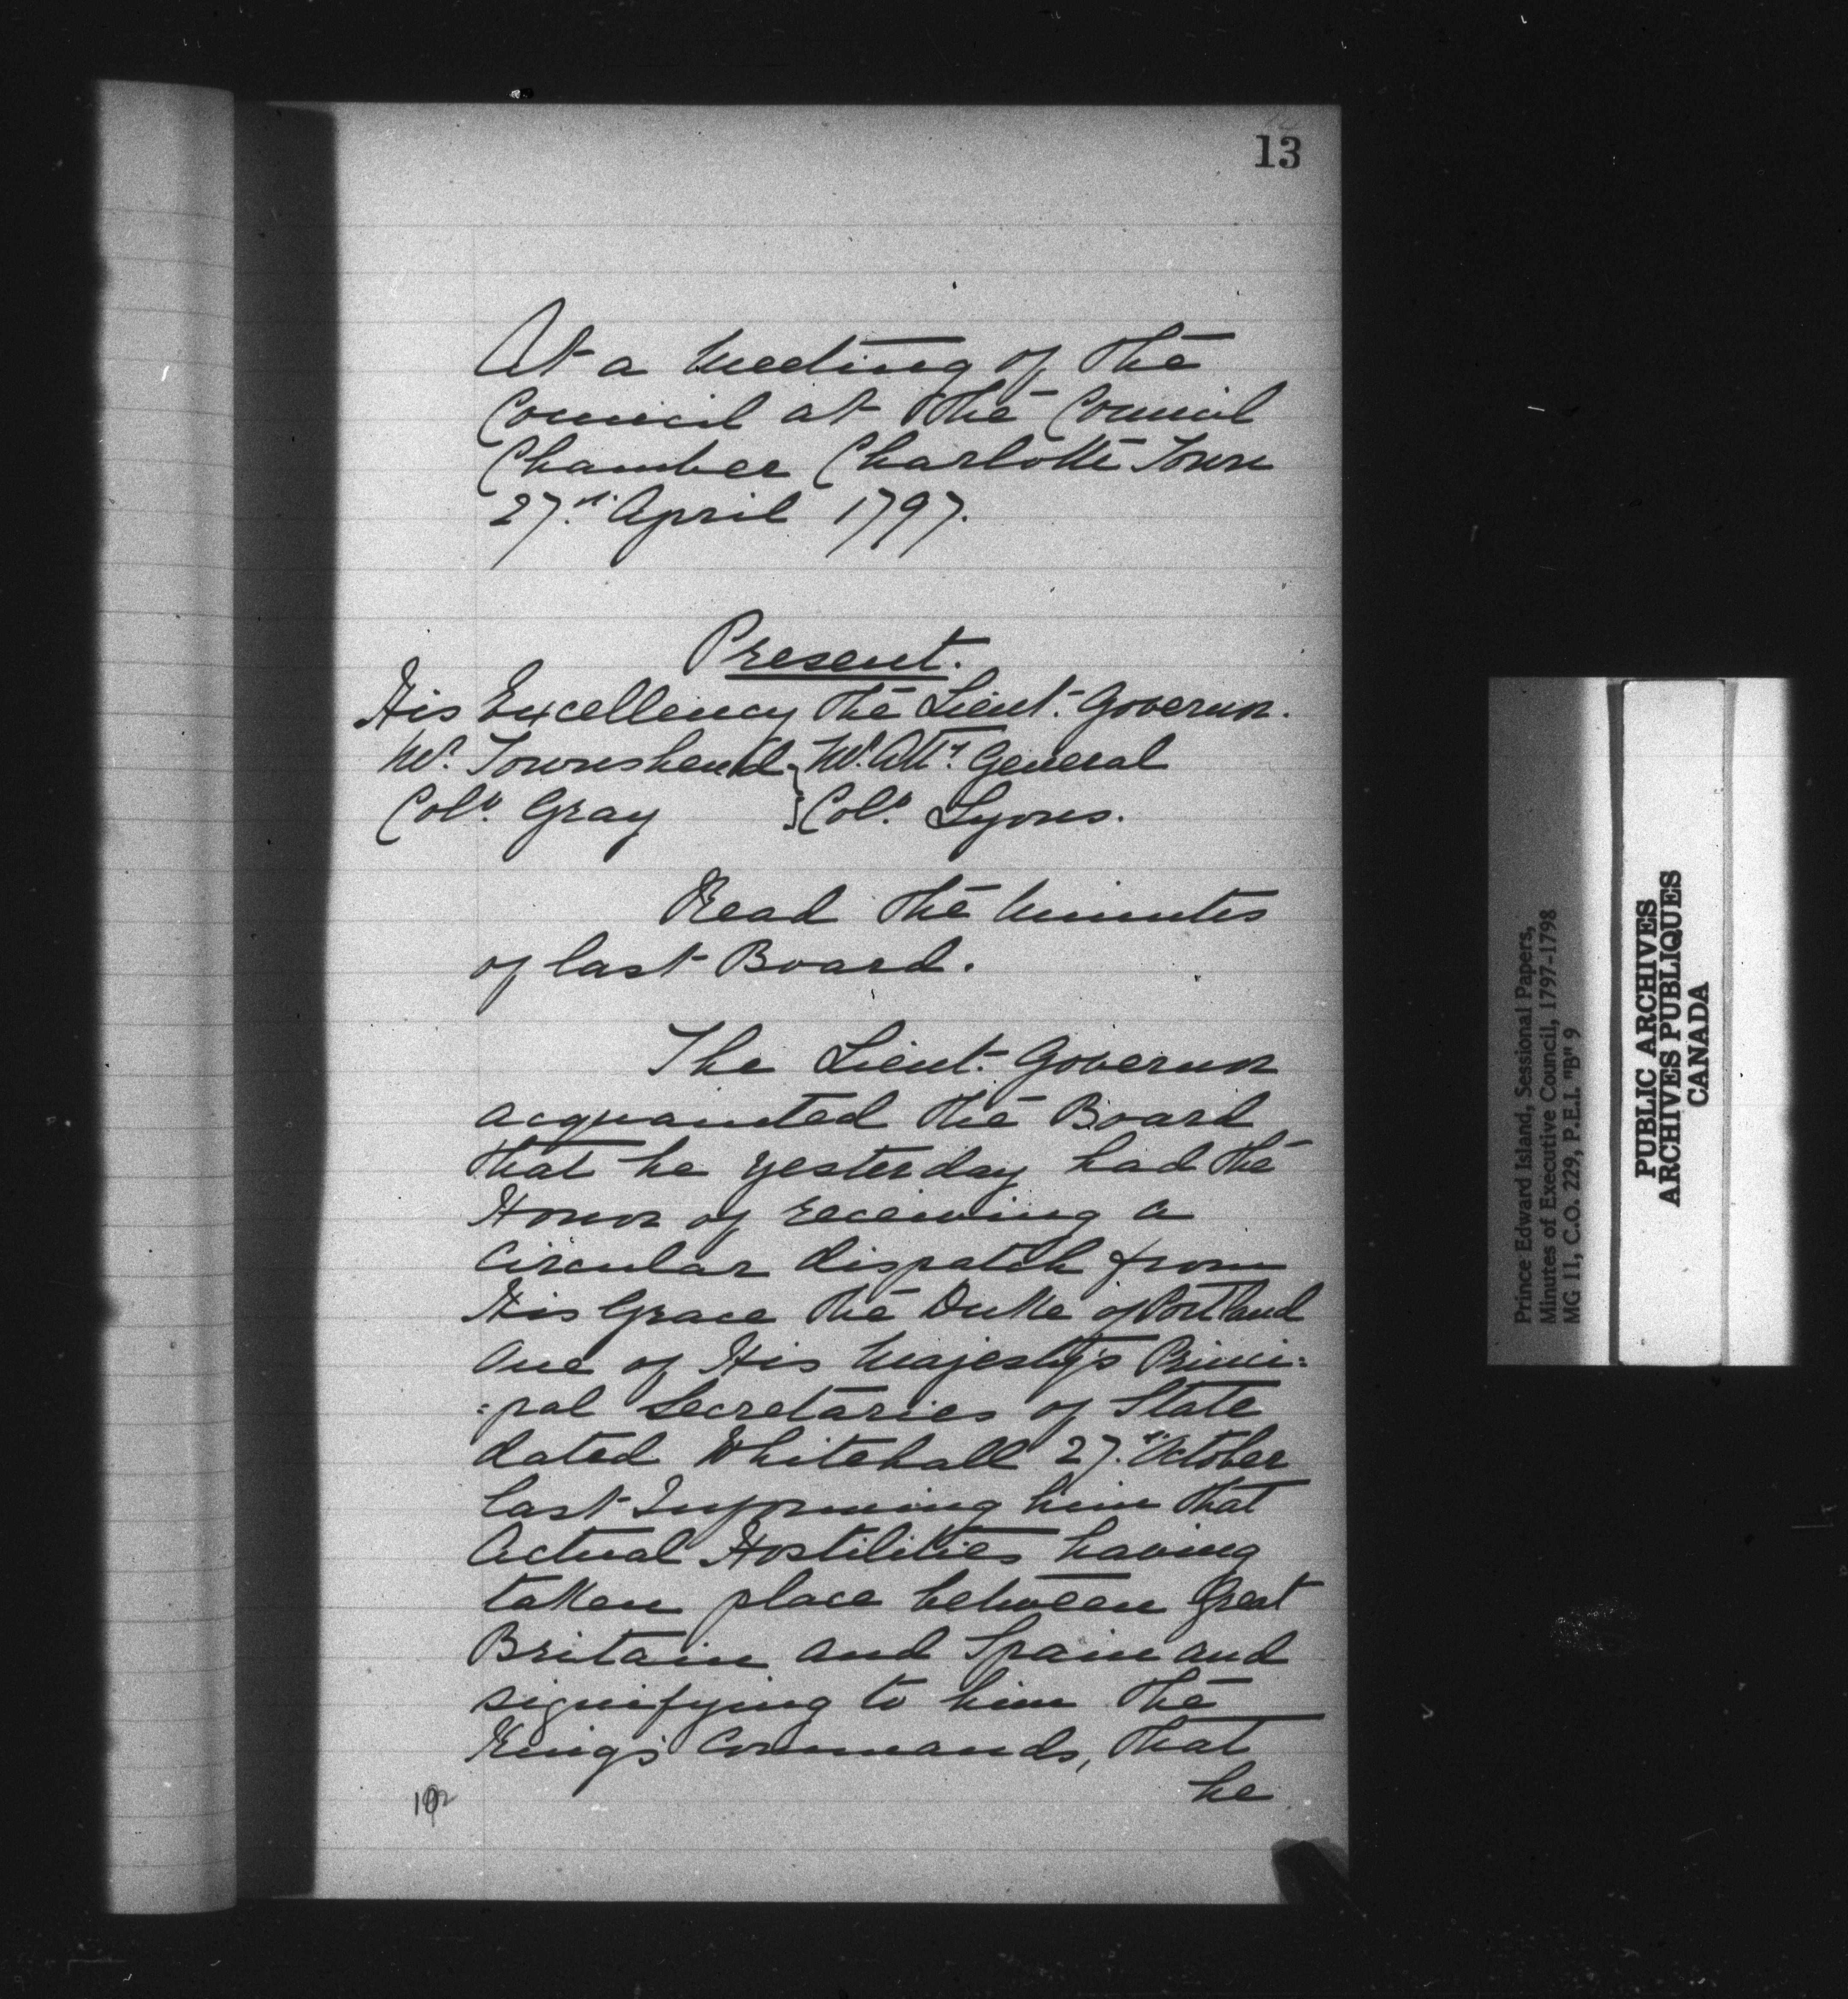 13
At a Meeting of the
Council at the Council
Chamber Charlotte Town
27.th April 1797.
Present.
His Excellency the Lieut. Governor.
Mr. Townshend } Mr. Atty. General
Colo. Gray } Colo. Lyons.
Read the Minutes
of last Board.
The Lieut. Governor
acquainted the Board
that he yesterday had the
Honor of receiving a
Circular dispatch from
His Grace the Duke of Portland
One of His Majesty's Princi=
=pal Secretaries of State
dated Whitehall 27.th October
last Informing him that
Actual Hostilities having
taken place between Great
Britain and Spain and
signifying to him the
King's Commands, that
he
Prince Edward Island, Sessional Papers,
Minutes of Executive Council, 1797-1798
MG 11, C.O. 229, P.E.I. "B" 9
PUBLIC ARCHIVES
ARCHIVES PUBLIQUES
CANADA